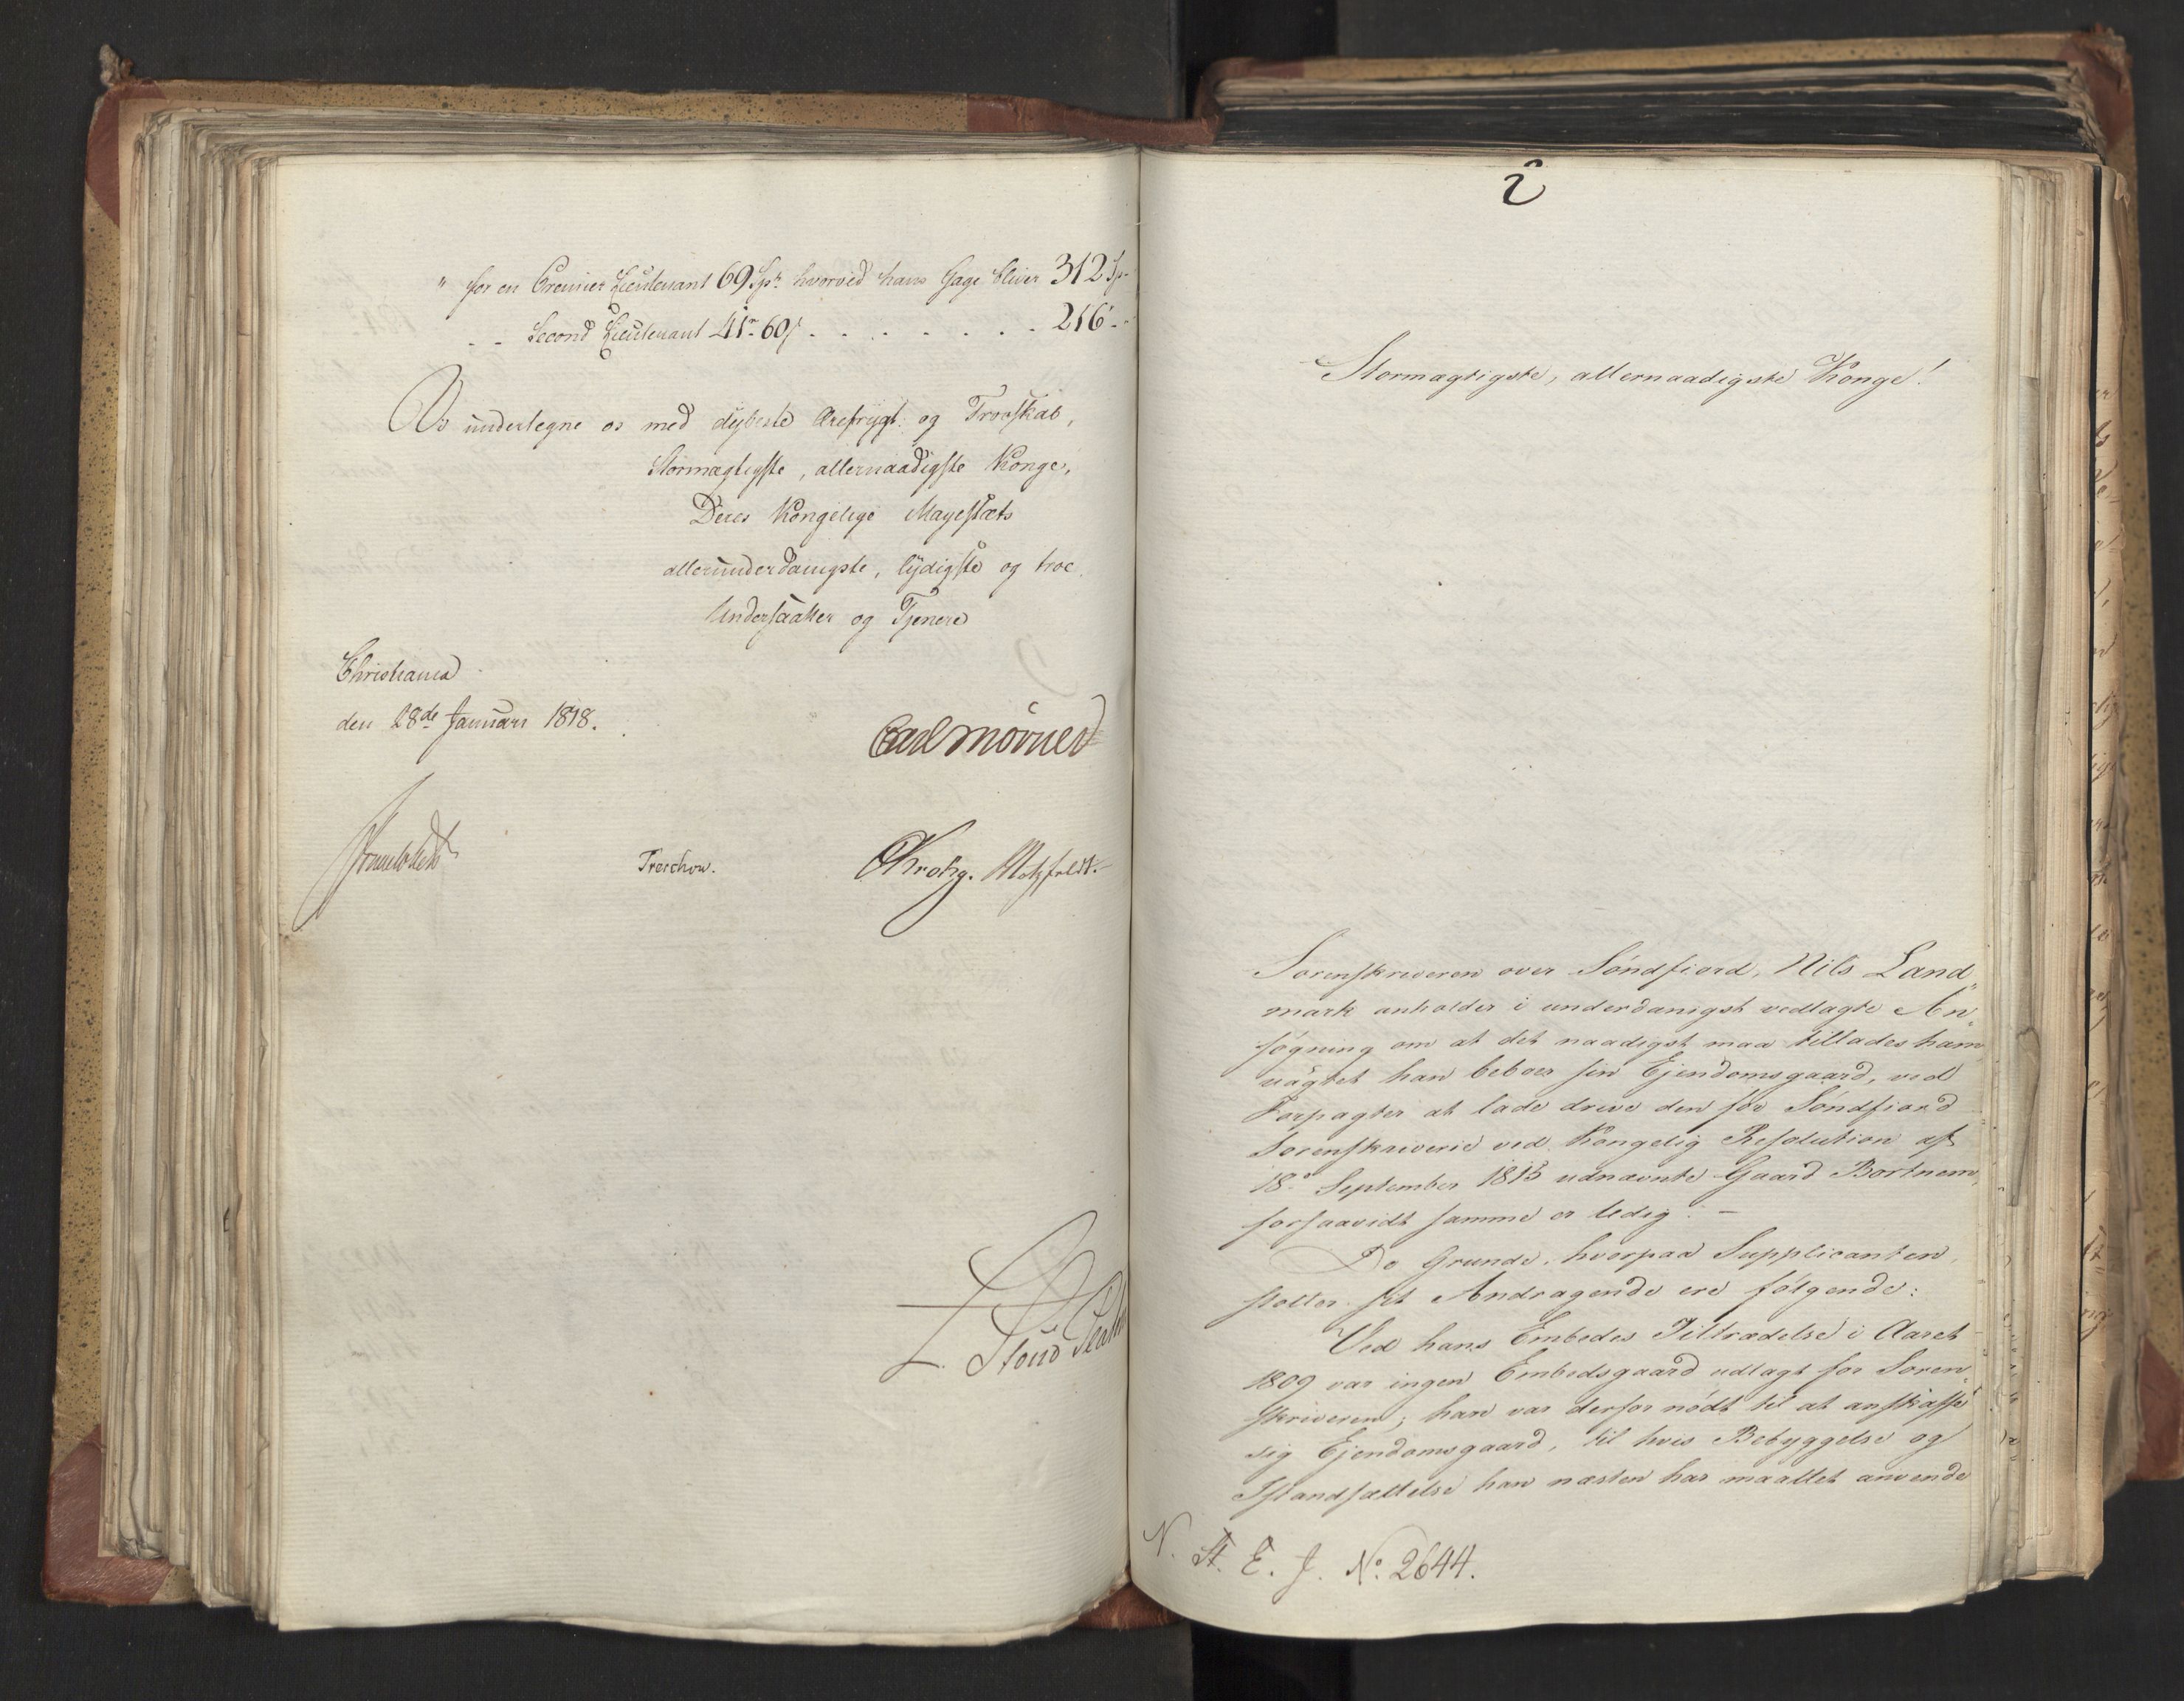 " for en Premier Lieutenant 69 Sp. hvorved hans Gage bliver 312 Sp.
- - Second Lieutenant 41 - 60 s . . . . . . . . 216 - -
Vi undertegne os med dybeste Ærefrygt og Troeskab,
Stormægtigste, allernaadigste Konge,
Deres Kongelige Mayestæts
allerunderdanigste, lydigste og troe
Undersaatter og Tjenere
Christiania
den 28de Januari 1818.
Carl Mörner
Treschow.
CKrohg. Motzfeldt.
2
Stormægtigste, allernaadigste Konge!
Sorenskriveren over Söndfiord, Nils Land„
mark anholder i underdanigst vedlagte An„
søgning om at det naadigst maa tillades ham
uagtet han beboer sin Ejendomsgaard, ved
Forpagter at lade drive den for Söndfiord
Sorenskriverie ved Kongelig Resolution af
18de September 1813 udnævnte Gaard Bortnem,
forsaavidt samme er ledig. -
De Grunde, hvorpaa Supplicanten
støtter sit Andragende ere følgende:
Ved hans Embedes Tiltrædelse i Aaret
1809 var ingen Embedsgaard udlagt for Soren„
skriveren; han var derfor nødt til at anskaffe
sig Ejendomsgaard, til hvis Bebyggelse og
Istandsættelse han næsten har maattet anvende
L. Stoud Platou
N. St. E. J. No. 2644.